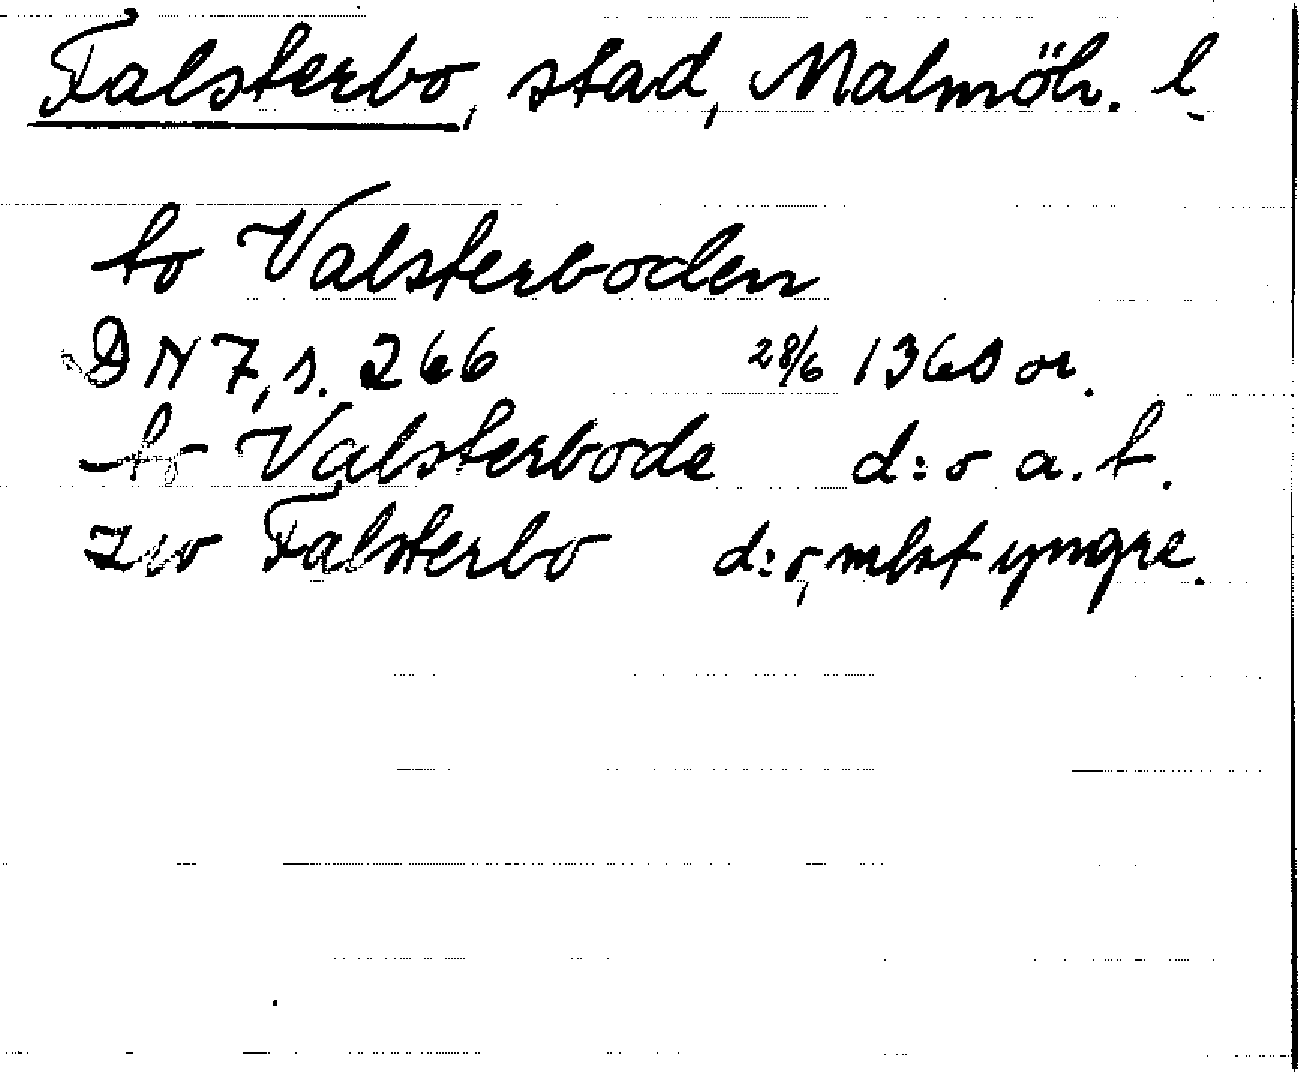 Falsterbo, stad, Malmöh. l
to Valsterboden
DN 7, s. 266 28/6 1360 or.
to Valsterbode d:o a. t.
zw Falsterbo d:o, mlst yngre.